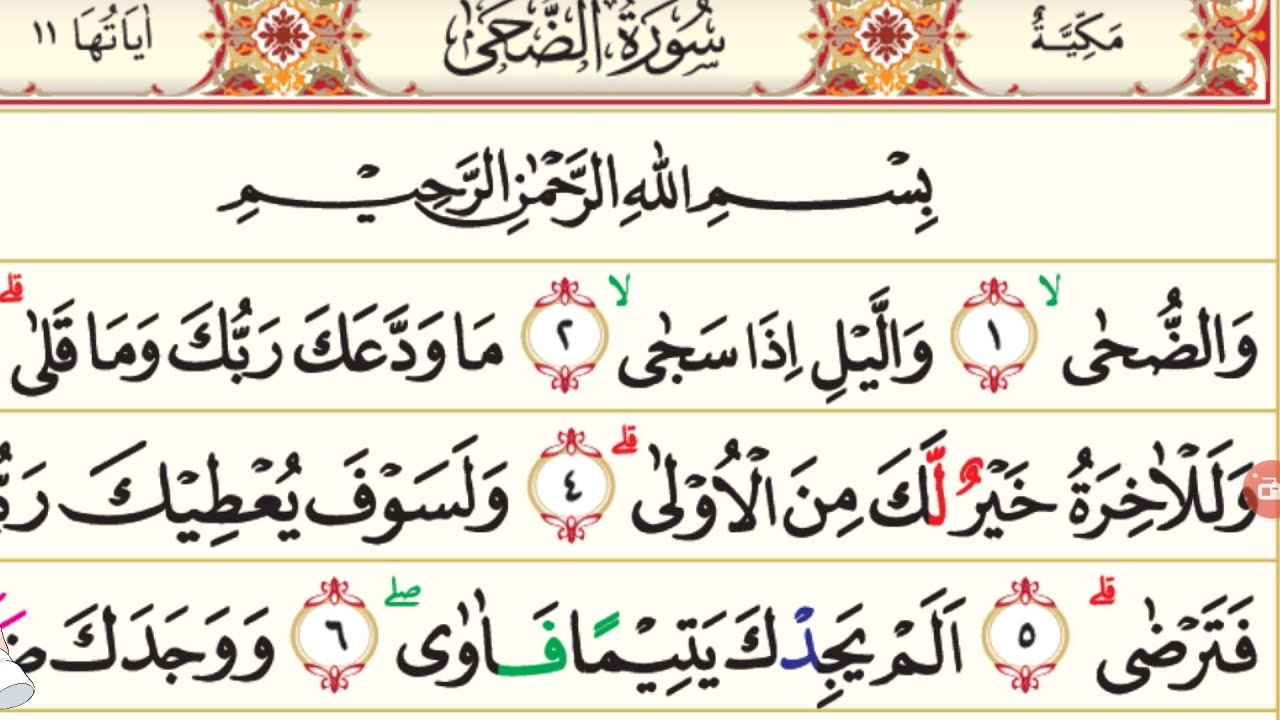 مَكِّيَّةٌ سُورَةُ الضُّحَىٰ اٰيَاتُهَا ١١
بِسْمِ اللّٰهِ الرَّحْمٰنِ الرَّحِيْمِ
وَالضُّحٰى ۙ ١ وَالَّيْلِ اِذَا سَجٰى ۙ ٢ مَا وَدَّعَكَ رَبُّكَ وَمَا قَلٰى ۗ
وَلَلْاٰخِرَةُ خَيْرٌ لَّكَ مِنَ الْاُوْلٰى ۗ ٤ وَلَسَوْفَ يُعْطِيْكَ
فَتَرْضٰى ۗ ٥ اَلَمْ يَجِدْكَ يَتِيْمًا فَاٰوٰى ۖ ٦ وَوَجَدَكَ